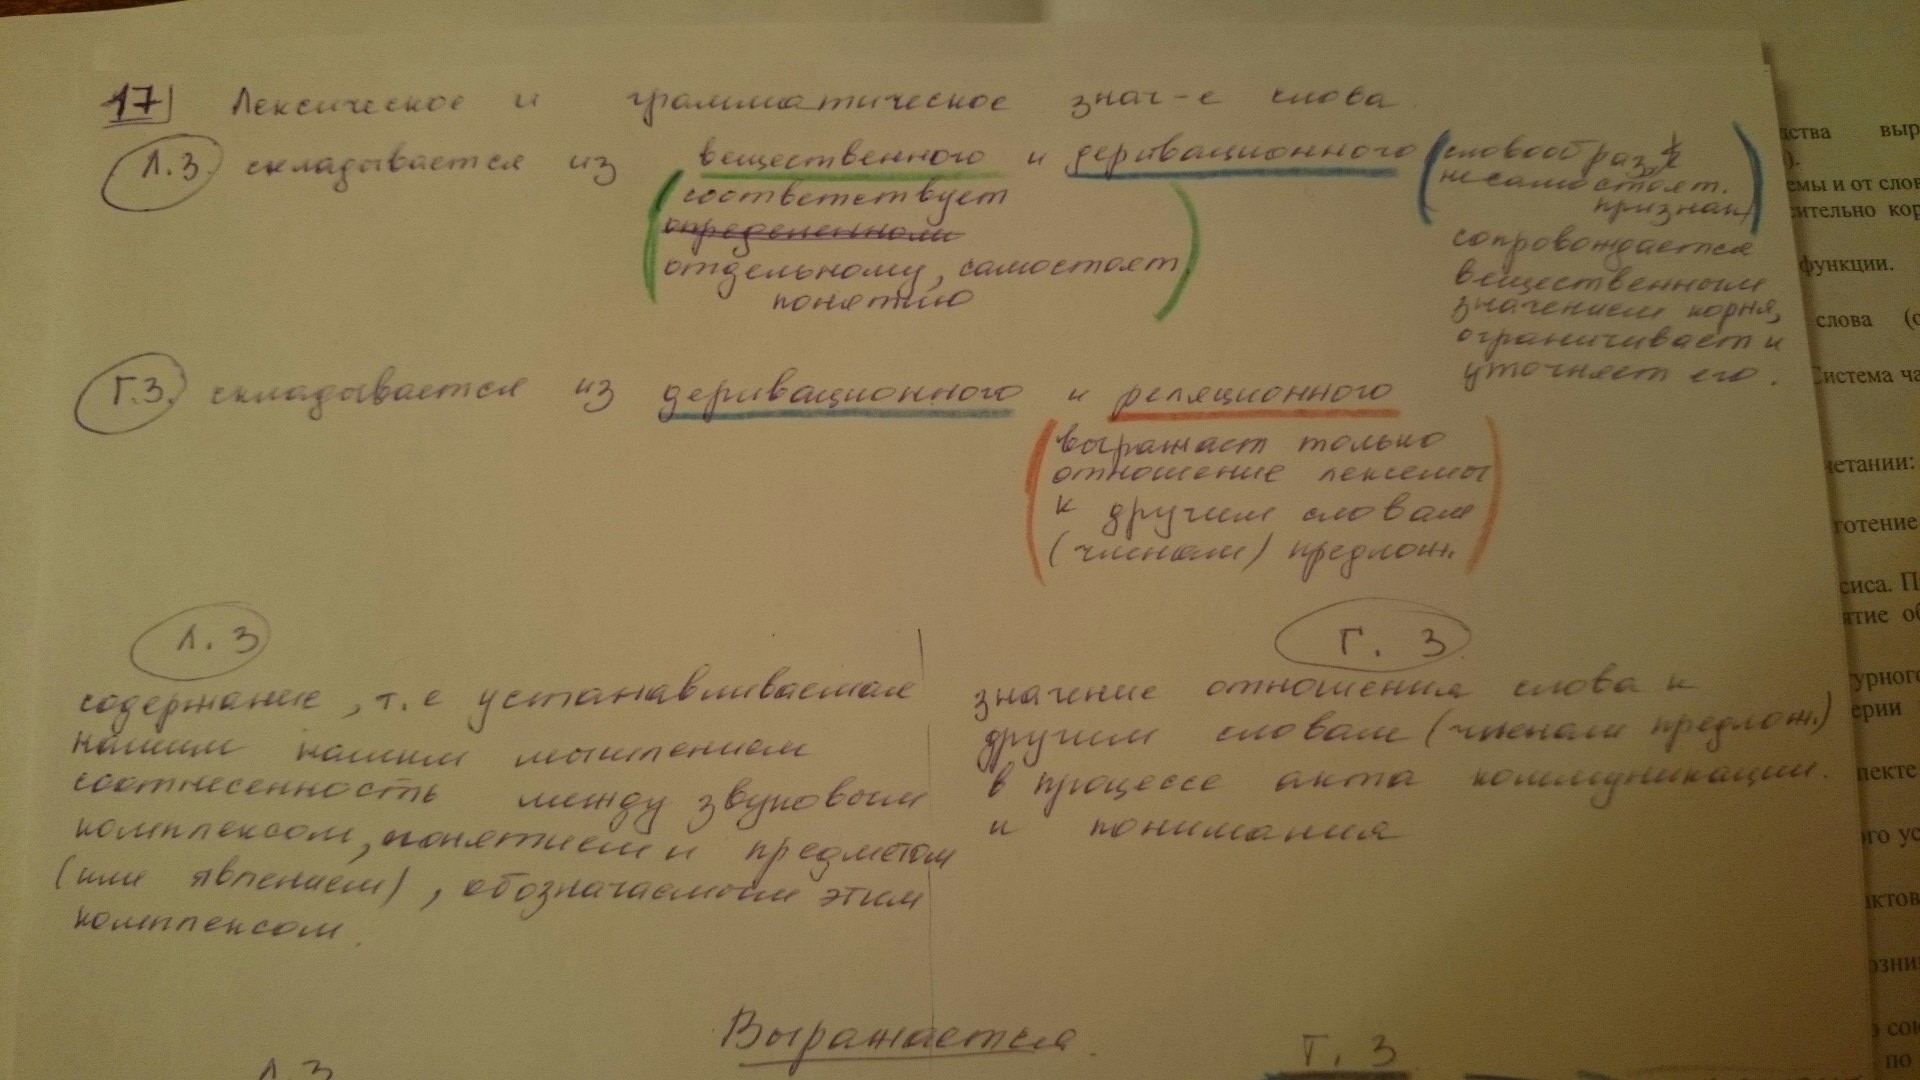 17 Лексическое и грамматическое знач-е слова.
Л.З. складывается из вещественного и деривационного (словообраз.
несамостоят.
признак)
(соответствует
определенному
отдельному, самостоят.
понятию)
сопровождается
вещественным
значением корня,
ограничивает и
уточняет его.
Г.З. складывается из деривационного и реляционного
(выражает только
отношение лексемы
к другим словам
(членам) предлож.)
Л.З
содержание, т.е устанавливаемая
нашим нашим мышлением
соотнесенность между звуковым
комплексом, понятием и предметом
(или явлением), обозначаемым этим
комплексом.
Г. З.
значение отношения слова к
другим словам (членам предлож.)
в процессе акта коммуникации
и понимания
Выражается.
Л.З
Г. З
выр
емы и от слов
ительно кор
функции.
слова (с
Система ча
четании:
готение
сиса. П
ятие об
урного
ерии
пекте
ого ус
актов
озни
сою
по